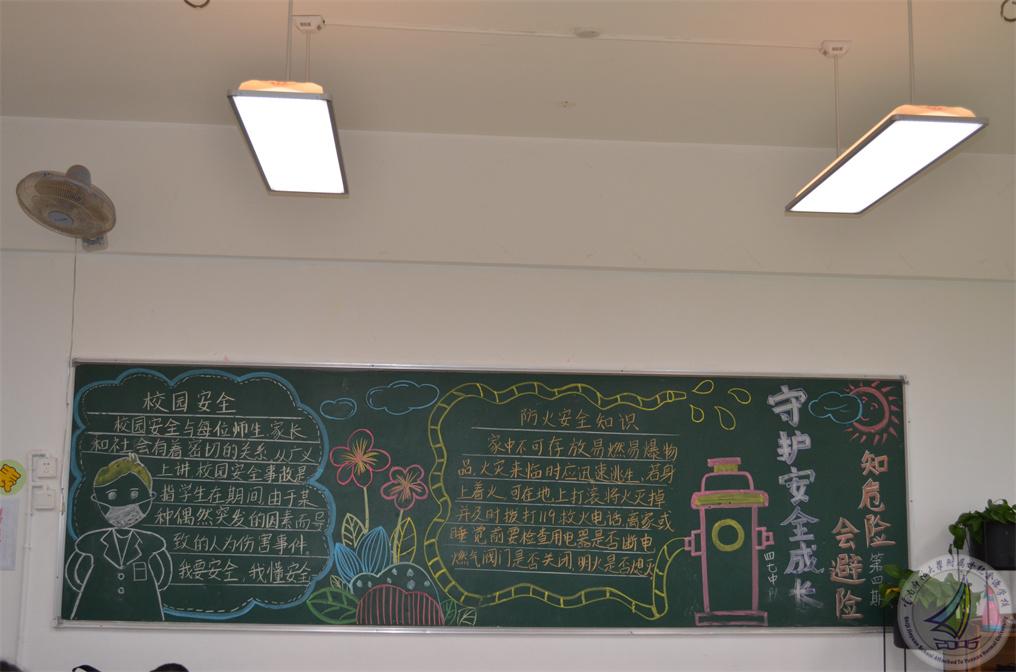 校园安全
校园安全与每位师生、家长
和社会有着密切的关系.从广义
上讲校园安全事故是
指学生在期间由于某
种偶然突发的因素而导
致的人为伤害事件.
我要安全,我懂安全
防火安全知识
家中不可存放易燃易爆物
品,火灾来临时应迅速逃生,若身
上着火,可在地上打滚将火灭掉
并及时拨打119.救火电话,离家或
睡觉前要检查用电器是否断电
燃气阀门是否关闭,明火是否熄灭
守护安全成长
四七中队
知危险
会避险
第四期